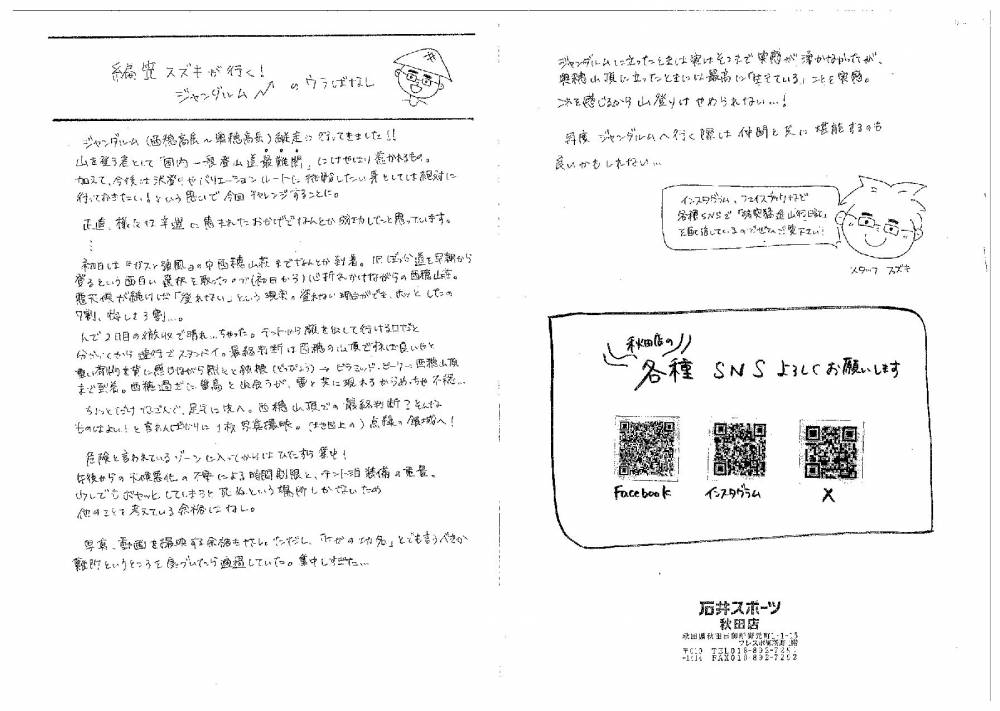 編笠 スズキが行く!
ジャンダルム のウラばなし
ジャンダルム(西穂高岳~奥穂高岳)縦走に行ってきました!!
山を登る者として「国内一般登山道最難関」にはやはり惹かれるもの。
加えて、今後は沢登りやバリエーションルートに挑戦したい身としては絶対に
行っておきたい!という思いで今回チャレンジすることに。
正直、様々な幸運に恵まれたおかげでなんとか成功したと思っています。
……
初日は『ガスと強風』の中西穂山荘までなんとか到着。
登るという面白い選択を取った
悪天候が続けば「登れない」という現実。登れない理由ができ、ホッとしたの
7割、悔しさ3割…。
んで2日目の撤収で晴れ…ちゃった。テントから顔を出して行ける口だと
分かってから速行でスタンバイ。最終判断は西穂の山頂ですれば良いやと
重い荷物を背に感じながら
→ピラミッドピーク→西穂山頂
まで到着。西穂過ぎに雷鳥と出会うが、雷と共に現れるからめっちゃ不穏…
西穂山頂での最終判断?そんな
ものはよい!と言わんばかりに1枚写真撮影。(地図上の)点線の領域へ!
危険と言われているゾーンに入ってからはひたすら集中!
午後からの天候悪化の不安による時間制限と、テント泊装備の重量。
少しでもボヤッとしてしまうと死ぬという場所しかないため
他のことを考えている余裕はなし。
写真、動画を撮影する余裕もなし。ただし、「ケガの功名」とでも言うべきか
難所というところを気づいたら通過していた。集中しすぎた…
ジャンダルムに立ったときは実はそこまで実感が湧かなかったが、
奥穂山頂に立ったときには最高に「生きている」ことを実感。
これを感じるから山登りはやめられない…!
再度ジャンダルムへ行く際は仲間と共に堪能するのも
良いかもしれない…
インスタグラム、フェイスブックなど
各種SNSで
を配信しているのでぜひご覧下さい!
スタッフ スズキ
秋田店の
各種 SNS よろしくお願いします
Facebook
インスタグラム
X
石井スポーツ
秋田店
TEL018-892-7291
FAX018-892-7292